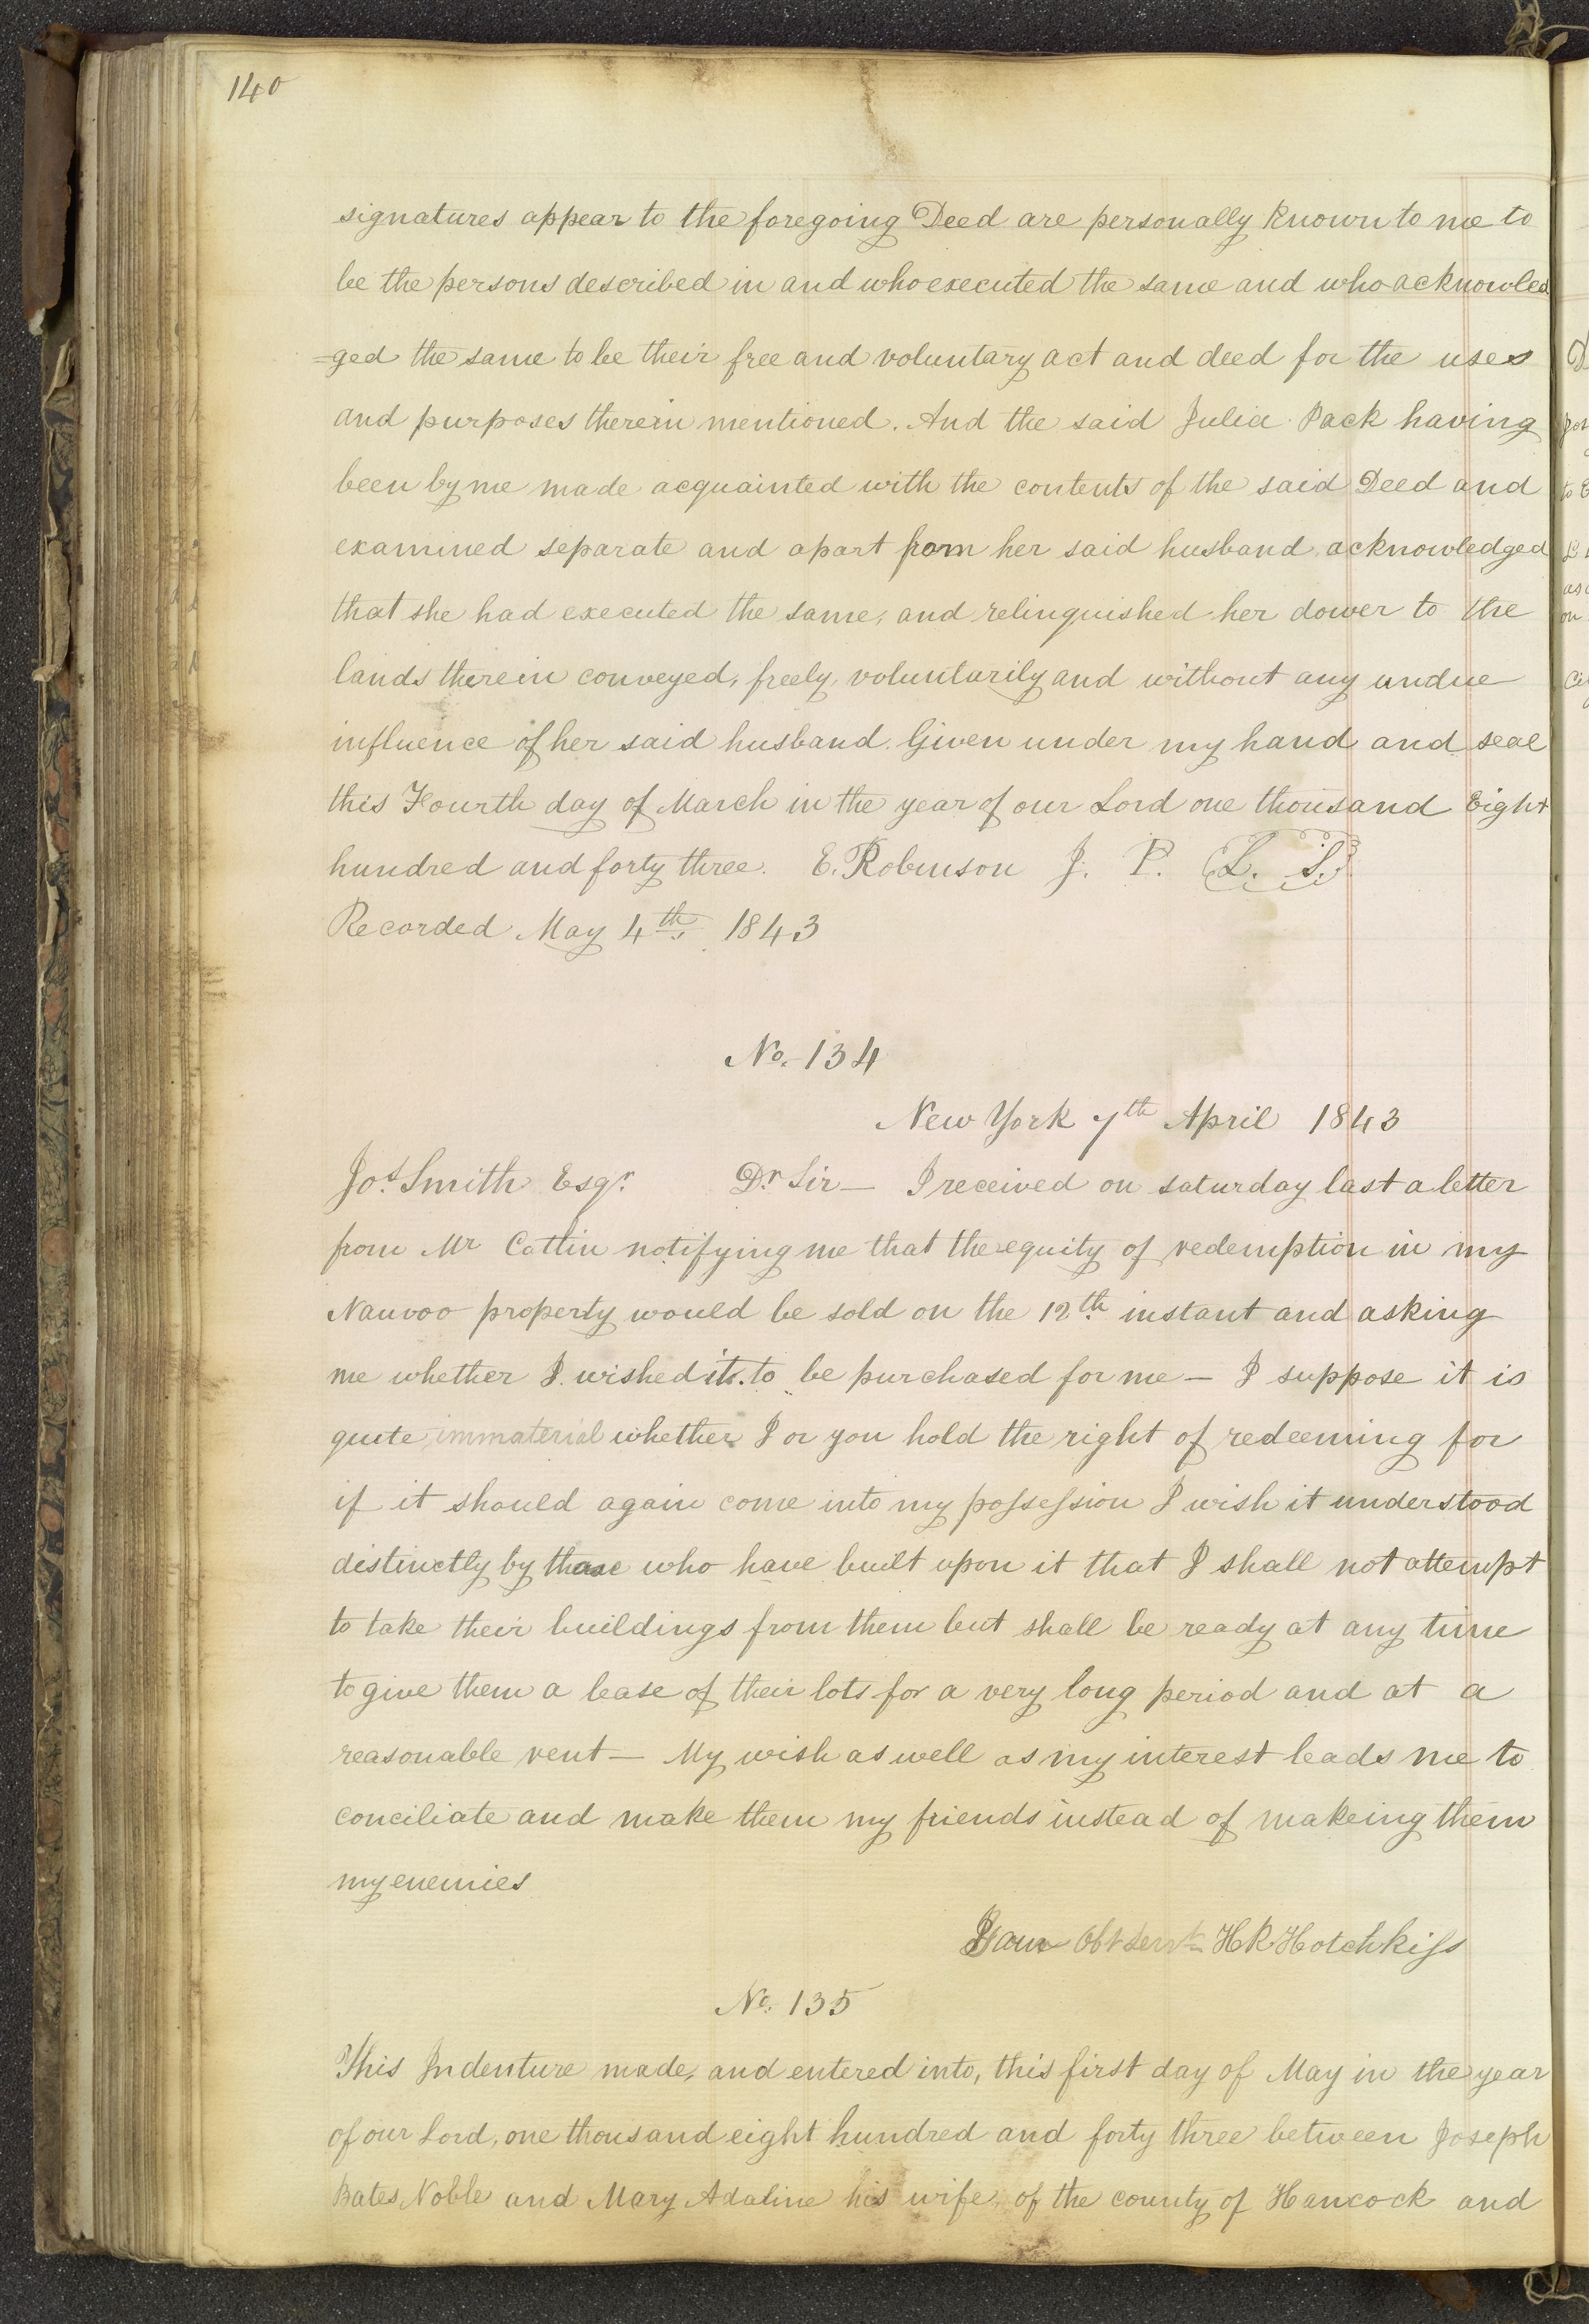 140
signatures appear to the foregoing Deed are personally known to me to
be the persons described in and who executed the same and who acknowled
=ged the same to be their free and voluntary act and deed for the uses
and purposes therein mentioned. And the said Julia Pack having
been by me made acquainted with the contents of the said Deed and
examined separate and apart from her said husband, acknowledged
that she had executed the same, and relinquished her dower to the
lands therein conveyed, freely, voluntarily and without any undue
influence of her said husband. Given under my hand and seal
this Fourth day of March in the year of our Lord one thousand Eight
hundred and forty three. E. Robinson J. P. L. S.
Recorded May 4th, 1843
No. 134
New York 7th April 1843
Jos. Smith Esqr. Dr Sir — I received on saturday last a letter
from Mr Catlin notifying me that the equity of redemption in my
Nauvoo property would be sold on the 12th instant and asking
me whether I wished it to be purchased for me — I suppose it is
quite immaterial whether I or you hold the right of redeeming for
if it should again come into my possession I wish it understood
distinctly by those who have built upon it that I shall not attempt
to take their buildings from them but shall be ready at any time
to give them a lease of their lots for a very long period and at a
reasonable rent — My wish as well as my interest leads me to
conciliate and make them my friends instead of makeing them
my enemies
Your Obt Servt HR Hotchkiss
No. 135
This Indenture made, and entered into, this first day of May in the year
of our Lord, one thousand eight hundred and forty three between Joseph
Bates Noble and Mary Adaline his wife, of the county of Hancock and